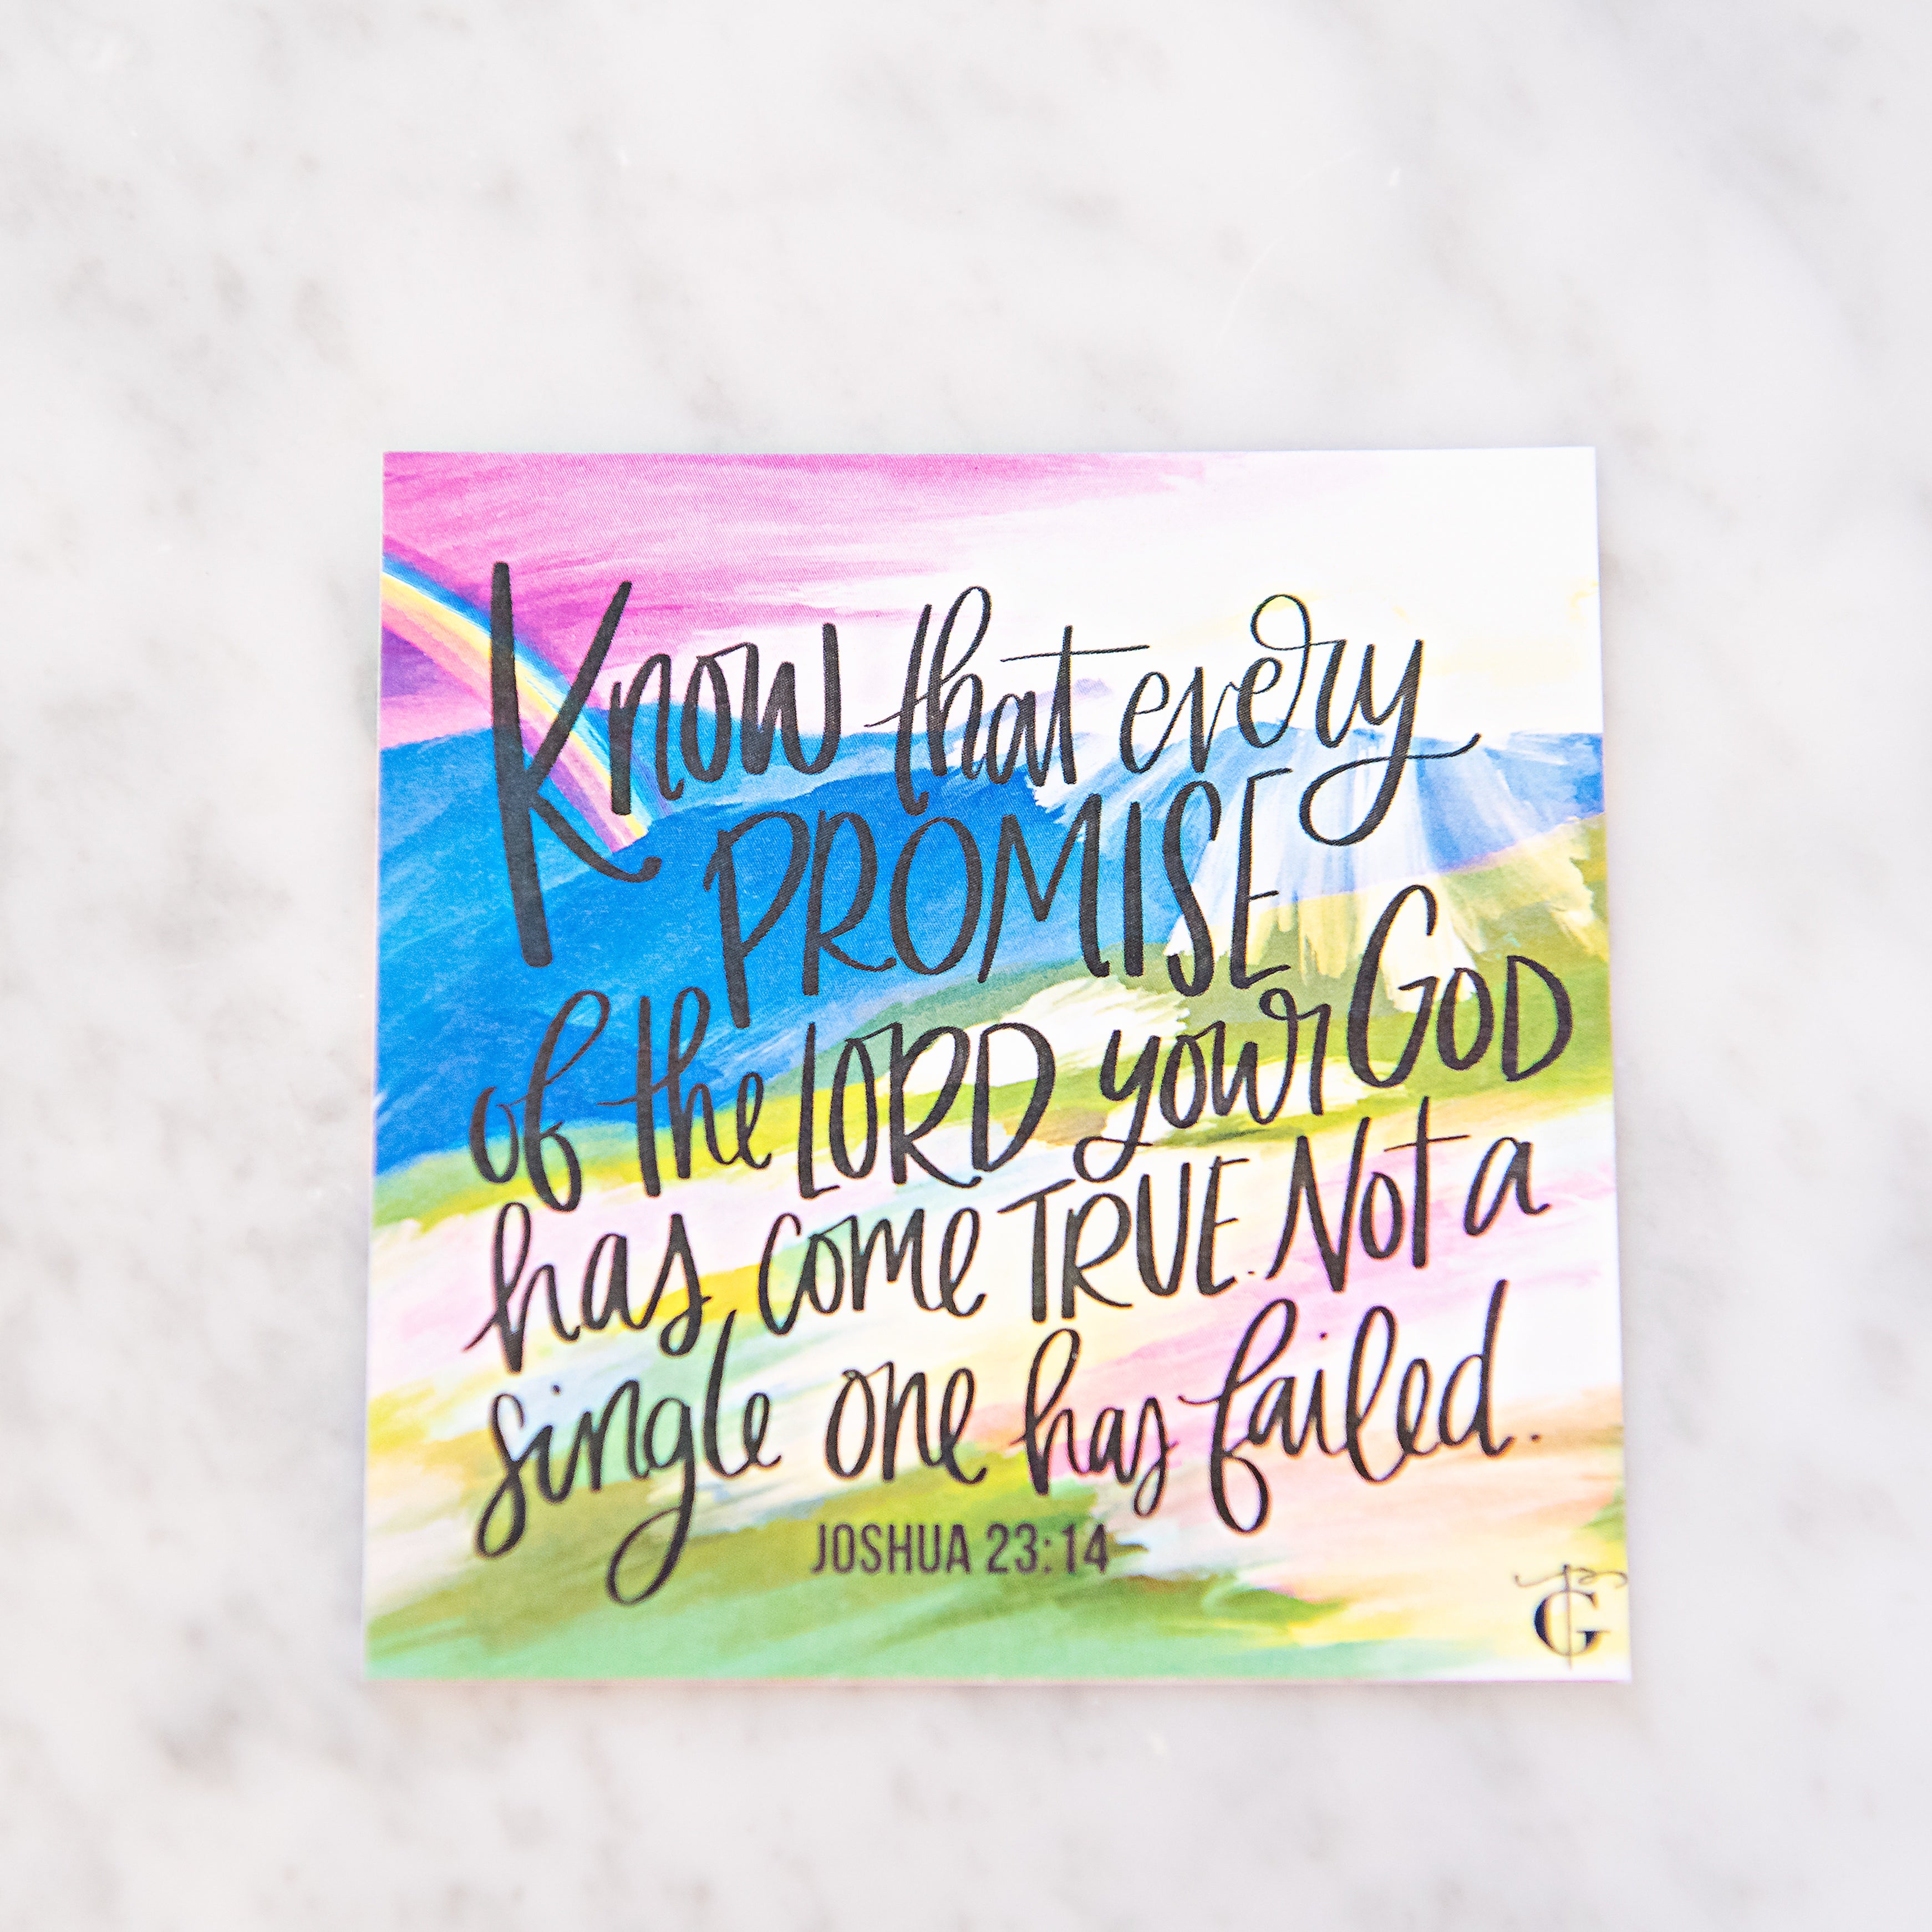 Know that every
PROMISE
of the LORD your GOD
has come TRUE. Not a
single one has failed.
JOSHUA 23:14
G